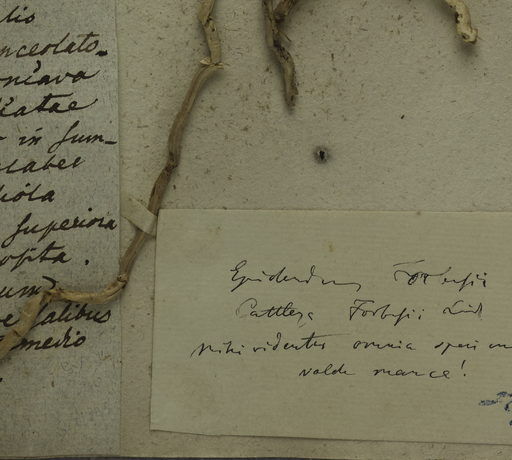 lio
nceolato-
oniava
liatae
in sum-
label
diola
superiora
opita.
um
salibus
medio
Epidendrum Forbesii
Cattleya Forbesii Lind
Mihi videntur omnia
valde manca!